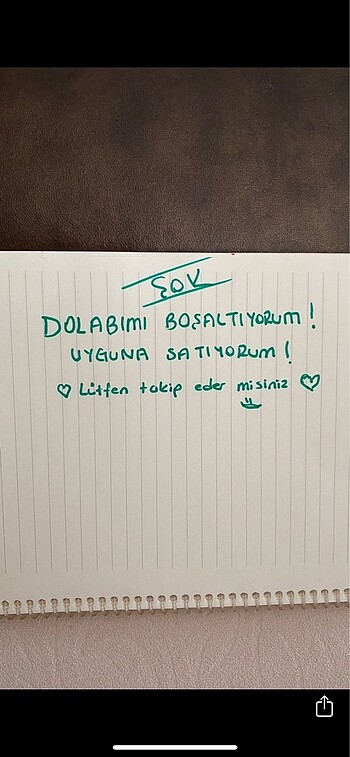 ŞOK
DOLABIMI BOŞALTIYORUM!
UYGUNA SATIYORUM!
♡ Lütfen takip eder misiniz ♡